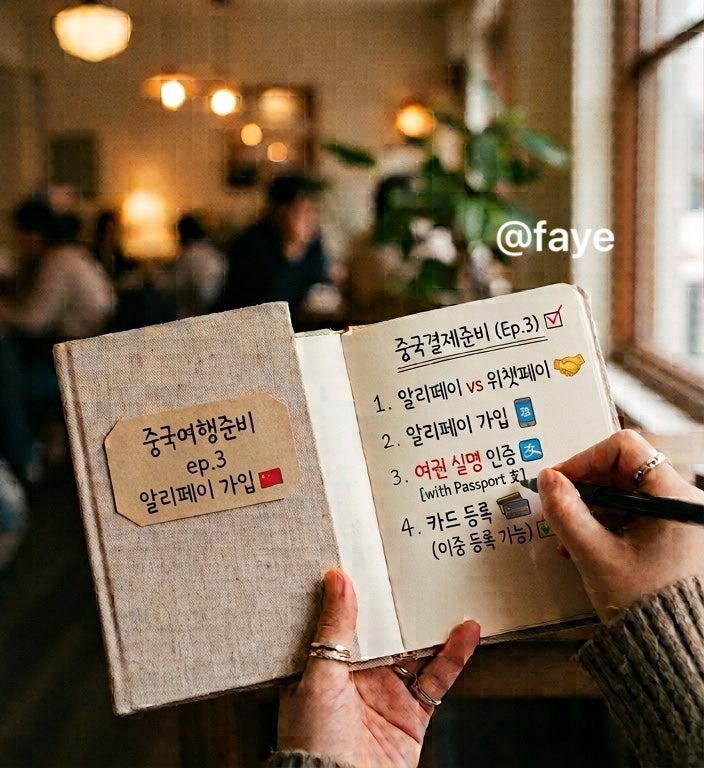 @faye
중국여행준비
ep.3
알리페이 가입
중국결제준비 (Ep.3)
1. 알리페이 vs 위챗페이
2. 알리페이 가입
3. 여권 실명 인증
[with Passport 支]
4. 카드 등록
(이중 등록 가능)